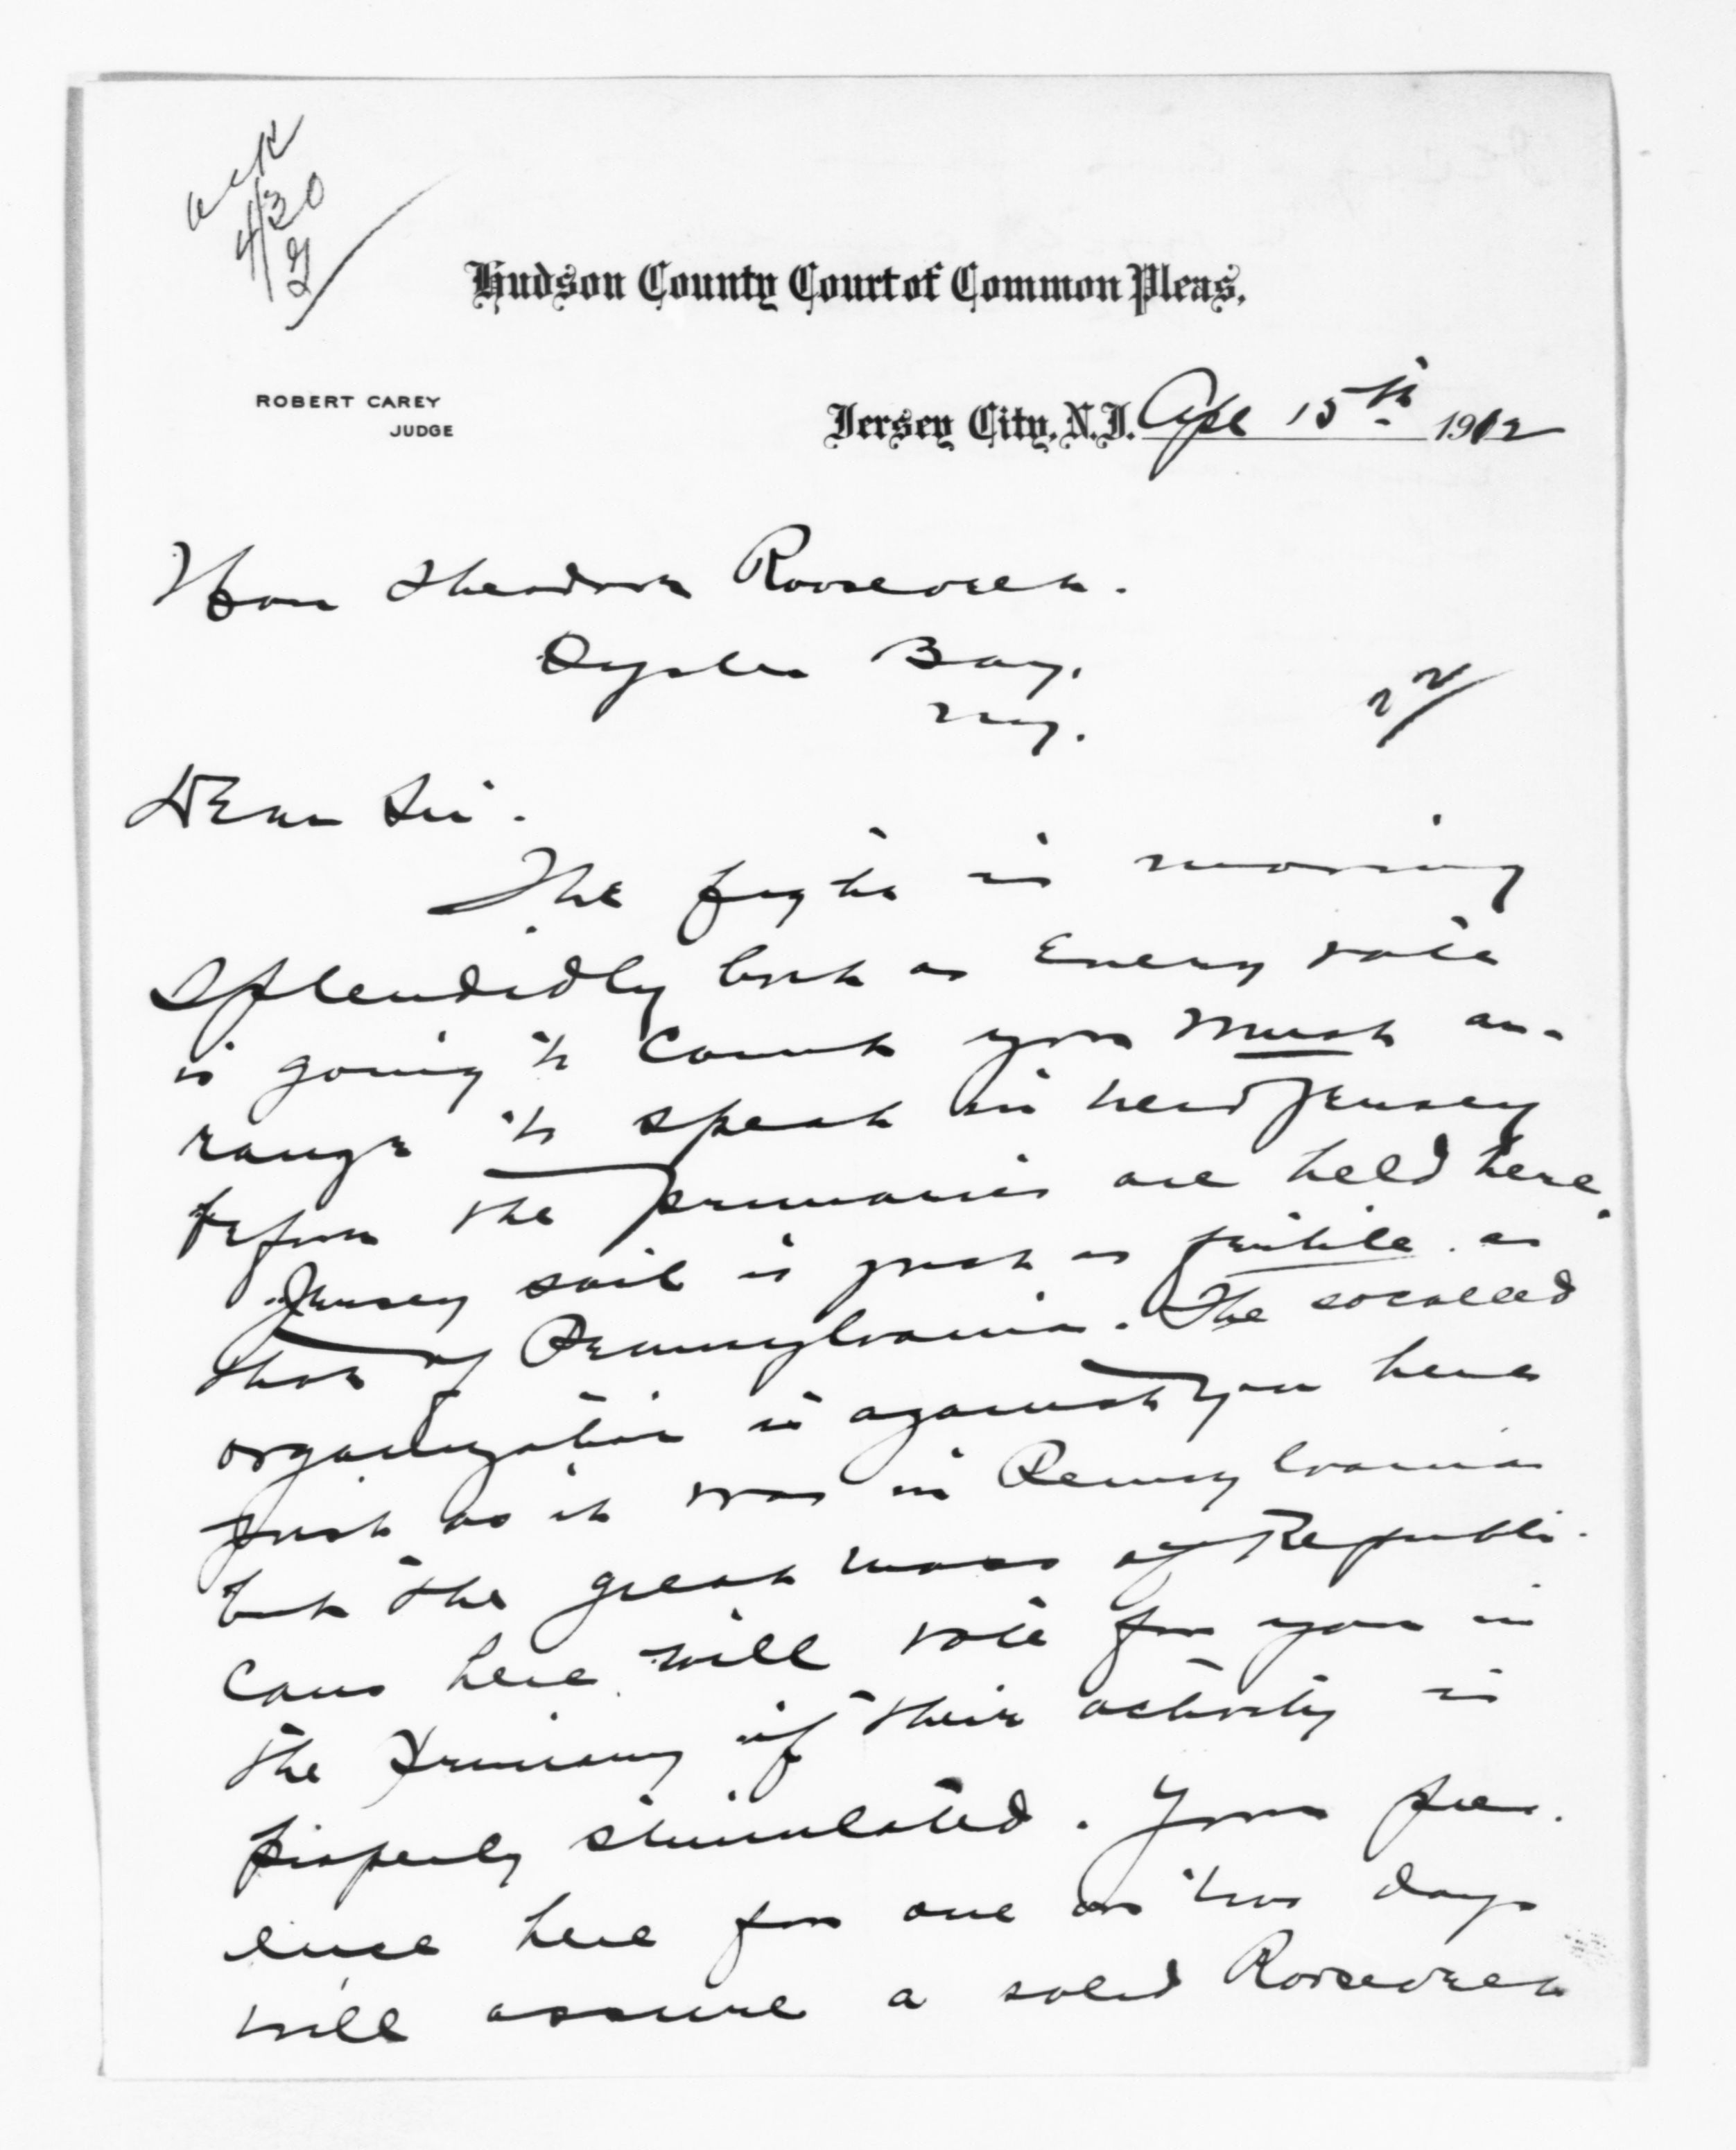 ack
4/30
Hudson County Court of Common Pleas.
ROBERT CAREY
JUDGE
Jersey City, N.J. Apl 15th 1912
Hon Theodore Roosevelt.
Oyster Bay.
N.Y.
Dear Sir.
The fight is moving
splendidly but as every vote
is going to count you must ar-
range to speak in New Jersey
before the primaries are held here.
Jersey soil is just as fertile as
that of Pennsylvania. The socalled
organization is against you here
just as it was in Pennsylvania
but the great mass of Republi-
cans here will vote for you in
the primary if their activity is
properly stimulated. Your pres-
ence here for one or two days
will assure a solid Roosevelt